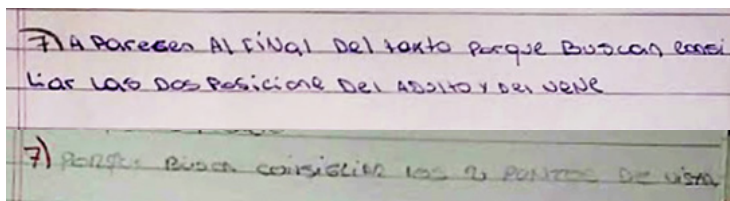 7) A Parecen Al FiNAl Del texto Porque Buscan consi
liar Las Dos Posicione Del ADulto y Del NeNe
7) Porque Busca consiglian los 2 PuNTos De visTa